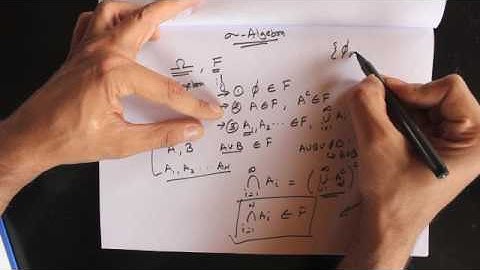 σ-Algebra
Ω, F
{ϕ,
① ϕ ∈ F
② A ∈ F, A^c ∈ F
③ A₁, A₂ ··· ∈ F, ∞∪i=1 Ai
A, B A∪B ∈ F
A₁, A₂ ··· An
∞∩i=1 Ai = (∞∪i=1 Ai^c)^c
∩i=1 Ai ∈ F